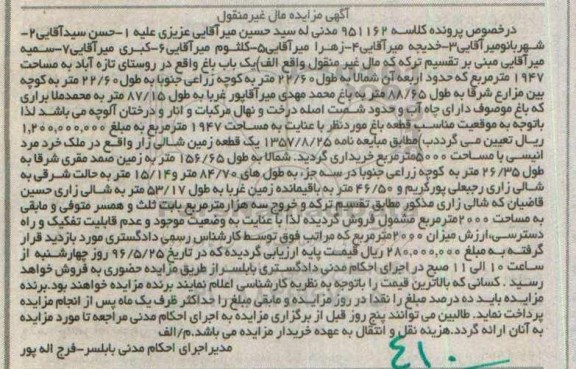 آگهی مزایده مال غیرمنقول
درخصوص پرونده کلاسه ۹۵۱۱۶۲ مدنی له سید حسین میرآقایی عزیزی علیه ۱-حسن سیدآقایی۲-
شهربانومیرآقایی۳-خدیجه میرآقایی۴-زهرا میرآقایی۵-کلثوم میرآقایی۶-کبری میرآقایی۷-سمیه
میرآقایی مبنی بر تقسیم ترکه که مال غیر منقول واقع الف)یک باب باغ واقع در روستای تازه آباد به مساحت
۱۹۴۷ مترمربع که حدود اربعه آن شمالا به طول ۲۲/۶۰ متر به کوچه زراعی جنوبا به طول ۲۲/۶۰ متر به کوچه
بین مزارع شرقا به طول ۸۸/۶۵ متر به باغ محمد مهدی میرآقاپور غربا به طول ۸۷/۱۵ متر به محمدملا براری
که باغ موصوف دارای چاه آب و حدود شصت اصله درخت و نهال مرکبات و انار و درختان آلوچه می باشد لذا
باتوجه به موقعیت مناسب قطعه باغ موردنظر با عنایه به مساحت ۱۹۴۷ مترمربع به مبلغ ۱,۲۰۰,۰۰۰,۰۰۰
ریال تعیین می گرددب)مطابق مبایعه نامه ۱۳۵۷/۸/۲۵ یک قطعه زمین شالی زار واقع در ملک خرد مرد
انیسی با مساحت ۵۰۰۰مترمربع خریداری گردید. شمالا به طول ۱۵۶/۶۵ متر به زمین صمد مقری شرقا به
طول ۲۶/۳۵ متر به کوچه زراعی جنوبا در سه جزء به طول های ۸۴/۷۰ متر و۱۵/۱۴ متر به حالت شرقی به
شالی زاری رجبعلی پورگریم و ۴۶/۵۰ متر به باقیمانده زمین غربا به طول ۵۳/۱۷ متر به شالی زاری حسین
قاضیان که شالی زاری مذکور مطابق تقسیم ترکه و خروج سه هزارمترمربع بابت ثلث و همسر متوفی و مابقی
به مساحت ۲۰۰۰مترمربع مشمول فروش گردیده لذا با عنایه به وضعیت موجود و عدم قابلیت تفکیک و راه
دسترسی،ارزش میزان ۲۰۰۰مترمربع که مراتب فوق توسط کارشناس رسمی دادگستری مورد بازدید قرار
گرفته به مبلغ ۲۸۰,۰۰۰,۰۰۰ ریال قیمت پایه ارزیابی گردیده که در تاریخ ۹۶/۵/۲۵ روز چهارشنبه از
ساعت ۱۰ الی ۱۱ صبح در اجرای احکام مدنی دادگستری بابلسر از طریق مزایده حضوری به فروش خواهد
رسید . کسانی که بالاترین قیمت را باتوجه به نظریه کارشناسی اعلام نمایند برنده مزایده خواهند بود.برنده
مزایده باید ده درصد مبلغ را نقدا در روز مزایده و مابقی مبلغ را حداکثر ظرف یک ماه پس از انجام مزایده
پرداخت نماید. طالبین می توانند پنج روز قبل از برگزاری مزایده به اجرای احکام مدنی مراجعه تا مورد مزایده
به آنان ارائه گردد.هزینه نقل و انتقال به عهده خریدار مزایده می باشد.م/الف
مدیراجرای احکام مدنی بابلسر-فرج اله پور
۴۱۰